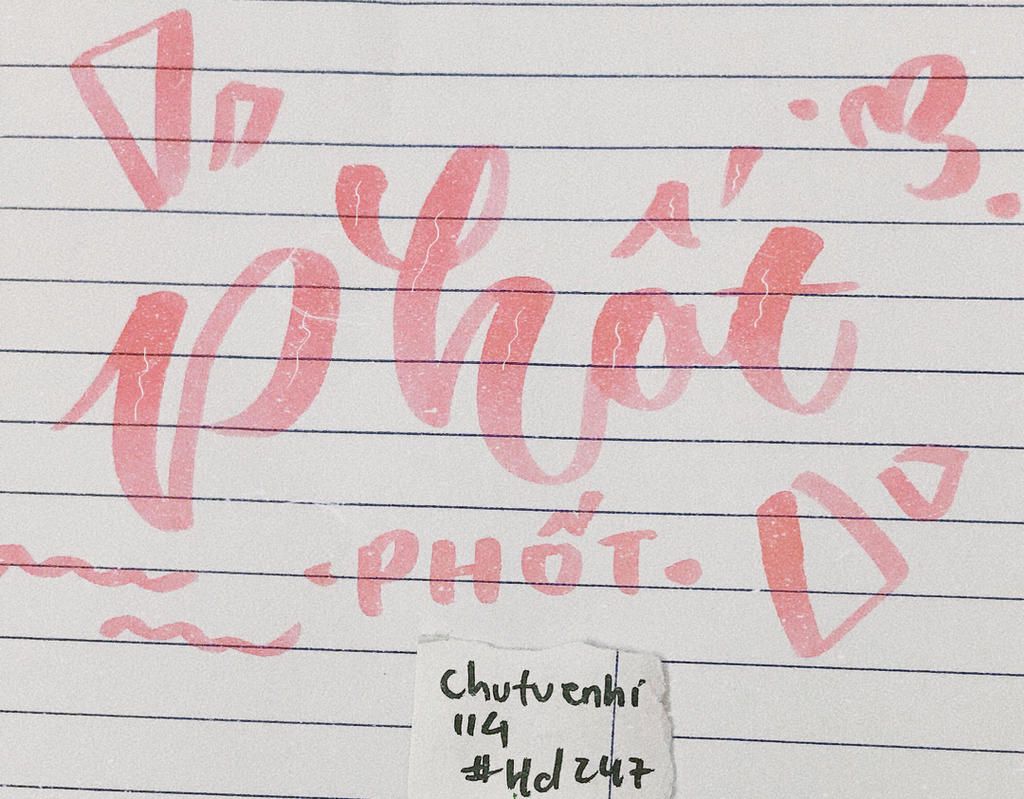 phốt
• PHỐT •
Chutuenhi
114
#Hd247